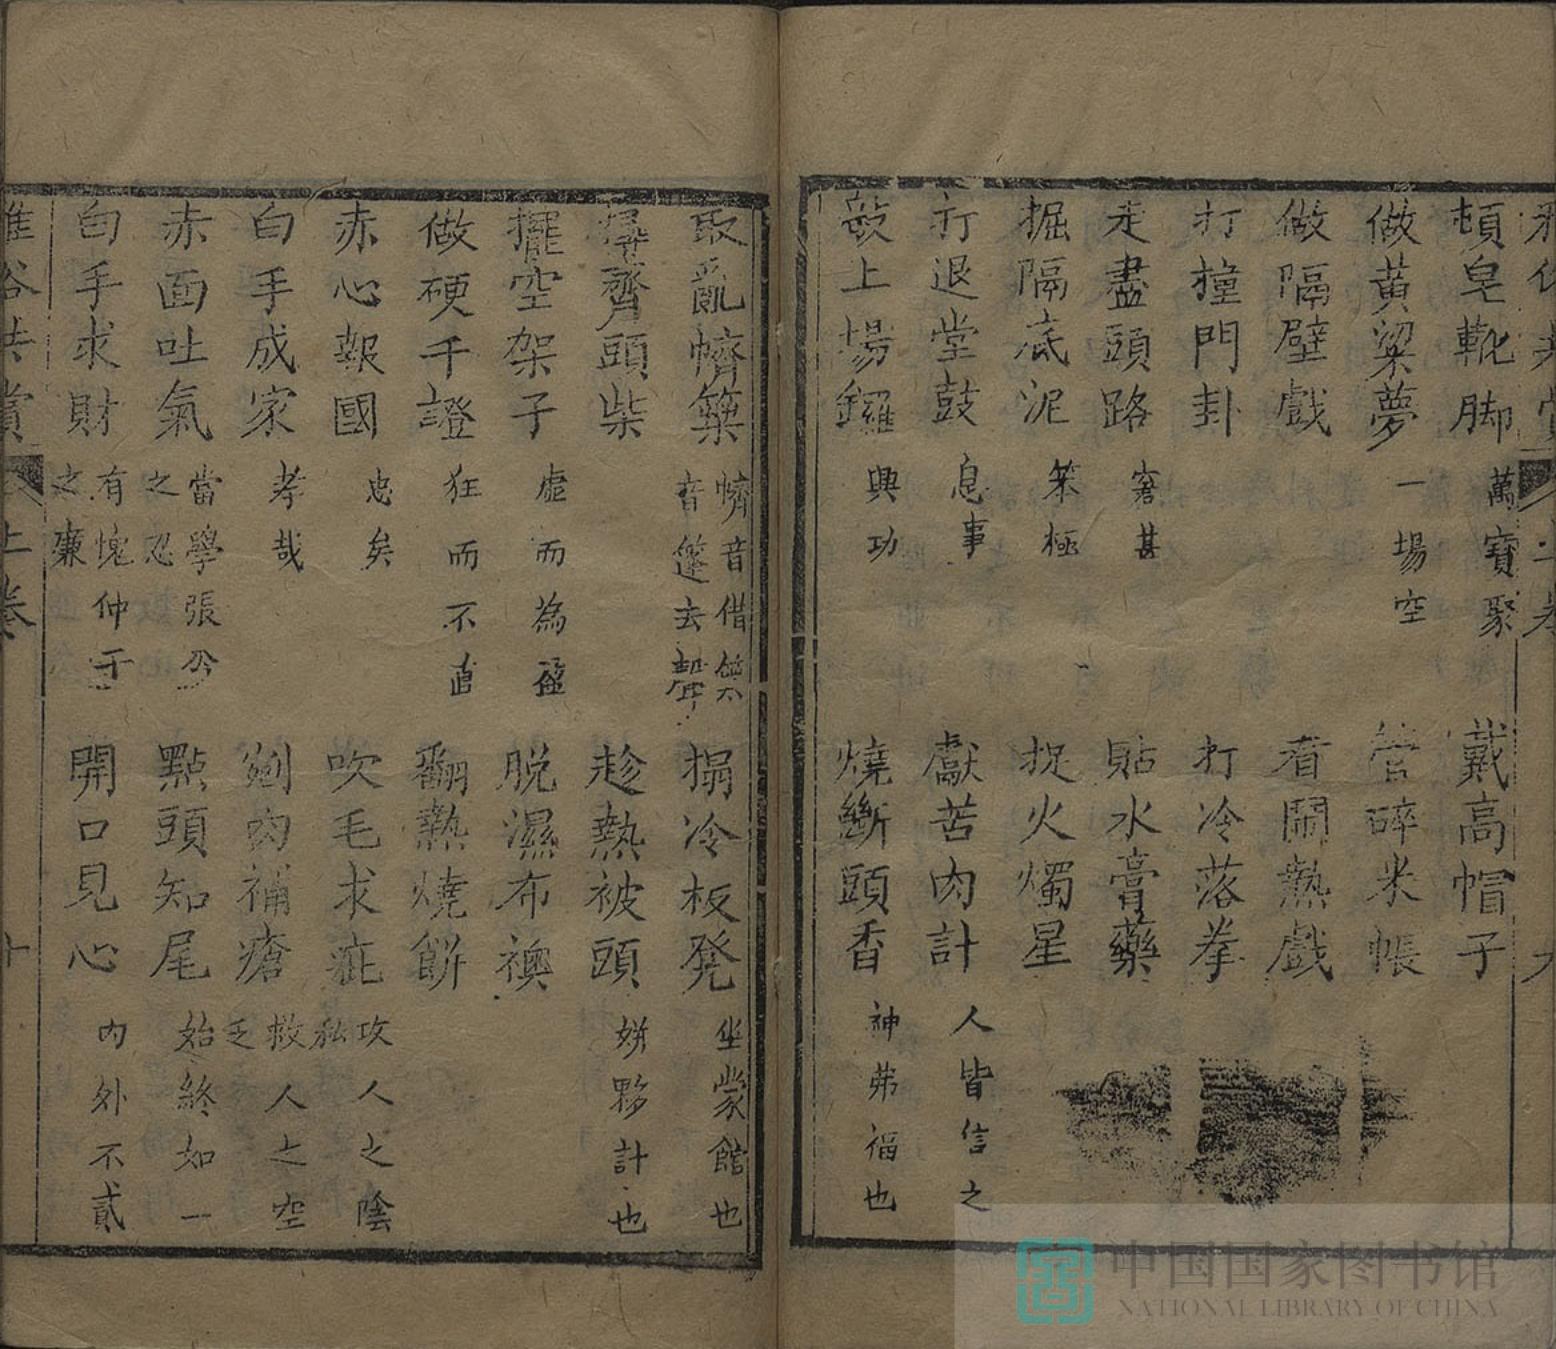 頓皂靴脚 萬寶聚 戴高帽子
做黃粱夢 一場空 管碎米帳
做隔壁戲 看鬧熱戲
打撞門卦 打冷落拳
走盡頭路 窘甚 貼水膏藥
掘隔底泥 笨極 捉火燭星
打退堂鼓 息事 獻苦肉計 人皆信之
敲上場鑼 興功 燒斷頭香 神弗福也
亂幯築 音借 音 去聲 搨冷板凳 坐蒙館也
齊頭柴 趁熱被頭 姘夥計也
擺空架子 虛而為盈 脫濕布襖
做硬干證 狂而不直 翻熱燒餅
赤心報國 忠矣 吹毛求疵 攻人之陰私
白手成家 孝哉 剜肉補瘡 救人之空乏
赤面吐氣 當學張公之忍 點頭知尾 始終如一
白手求財 有愧仲子之廉 開口見心 內外不貳
上卷 十
中国国家图书馆
NATIONAL LIBRARY OF CHINA